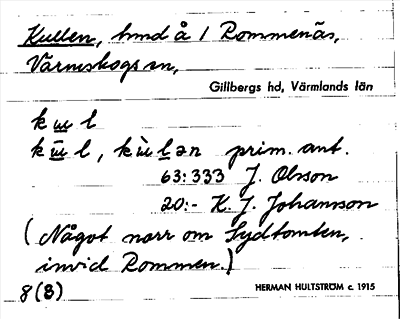 Kullen, hmd å 1 Rommenäs,
Värmskogs sn,
Gillbergs hd, Värmlands län
k ɯ l
k ɯ̄ l, k ɯ̀ l ən prim. ant.
63:333 J. Olsson
20:- K. J. Johansson
(Något norr om Sydtomten,
invid Rommen.)
8(3) HERMAN HULTSTRÖM c. 1915